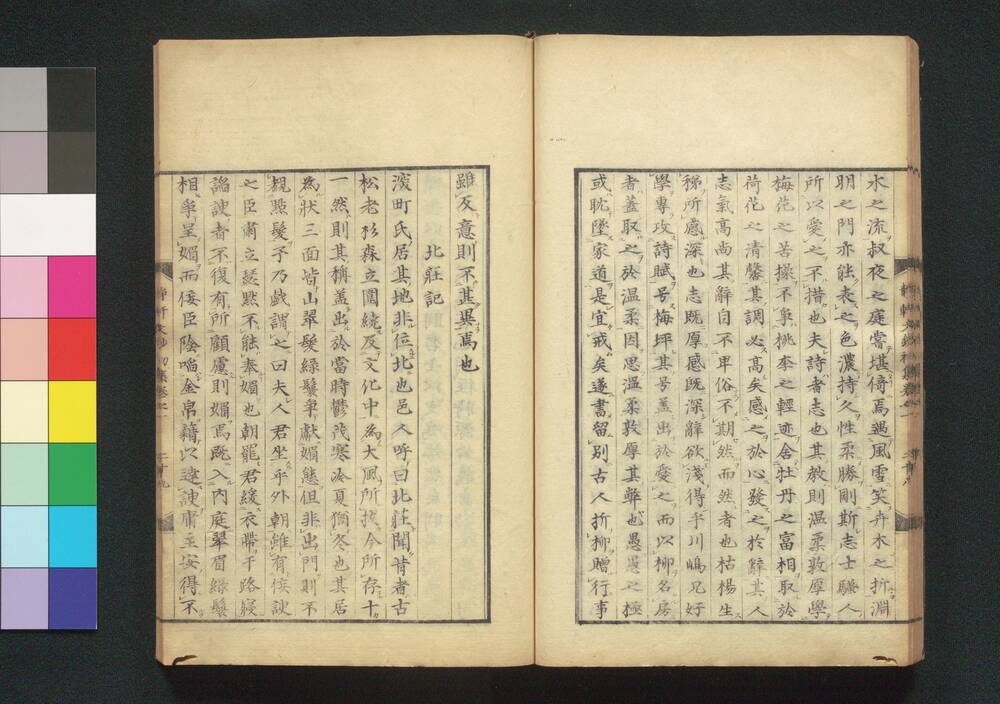 水之流叔夜之庭嘗堪倚焉遇風雪笑卉木之折淵
明之門亦能表之色濃持久性柔勝剛斯志士騷人
所以愛之不措也夫詩者志也其教則温柔敦厚學
梅花之苦操不爭桃李之輕迹舎牡丹之富相取於
荷花之清馨其調必高矣感之於心發之於辭其人
志氣高尚其辭自不卑俗不期然而然者也枯楊生
稊所感深也志既厚感既深辭欲淺得乎川嶋兄好
學專攻詩賦号梅坪其号蓋出於愛之而以柳名房
者蓋取之於温柔因思温柔敦厚其弊也愚愚之極
或耽墜家道是宜戒矣遂書留別古人折柳贈行事
雖反意則不甚異焉也
北莊記
濱町氏居其地非位北也邑人呼曰北莊聞昔者古
松老杉森立圍繞及文化中為大風所拔今所存十
一然則其稱蓋出於當時鬱茂寒冷夏猶冬也其居
為狀三面皆山翠髮緑鬟爭獻媚態但非出門則不
覩點髮子乃戯謂之曰夫人君坐乎外朝雖有佞諛
之臣肅立瑟黙不能奏媚也朝罷君緩衣帶于路寢
諂諛者不復有所顧慮則媚焉既入内庭翠眉緑鬟
相爭呈媚而佞臣陰啗金帛籍以達諛庸主安得不